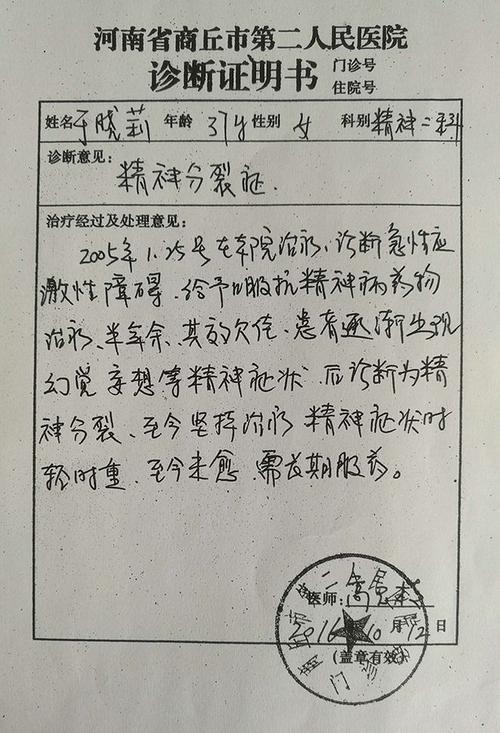 河南省商丘市第二人民医院
诊断证明书 门诊号
住院号
姓名 于晓莉 年龄 37岁 性别 女 科别 精神二科
诊断意见：
精神分裂症.
治疗经过及处理意见：
2005年1.25号在本院治疗、诊断急性应
激性障碍.给予口服抗精神病药物
治疗、半年余、其效欠佳、患者逐渐出现
幻觉妄想等精神症状.后诊断为精
神分裂、至今坚持治疗 精神症状时
轻时重、至今未愈 需长期服药。
医师：
2016 10月12日
(盖章有效)